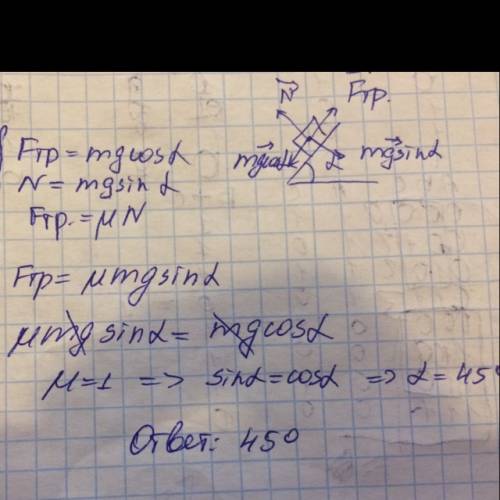 N⃗ Fтр.
mg⃗cosα α mg⃗sinα
Fтр = mgcosα
N = mgsinα
Fтр. = μN
Fтр = μmgsinα
μmgsinα = mgcosα
μ=1 => sinα = cosα => α = 45°
Ответ: 45°